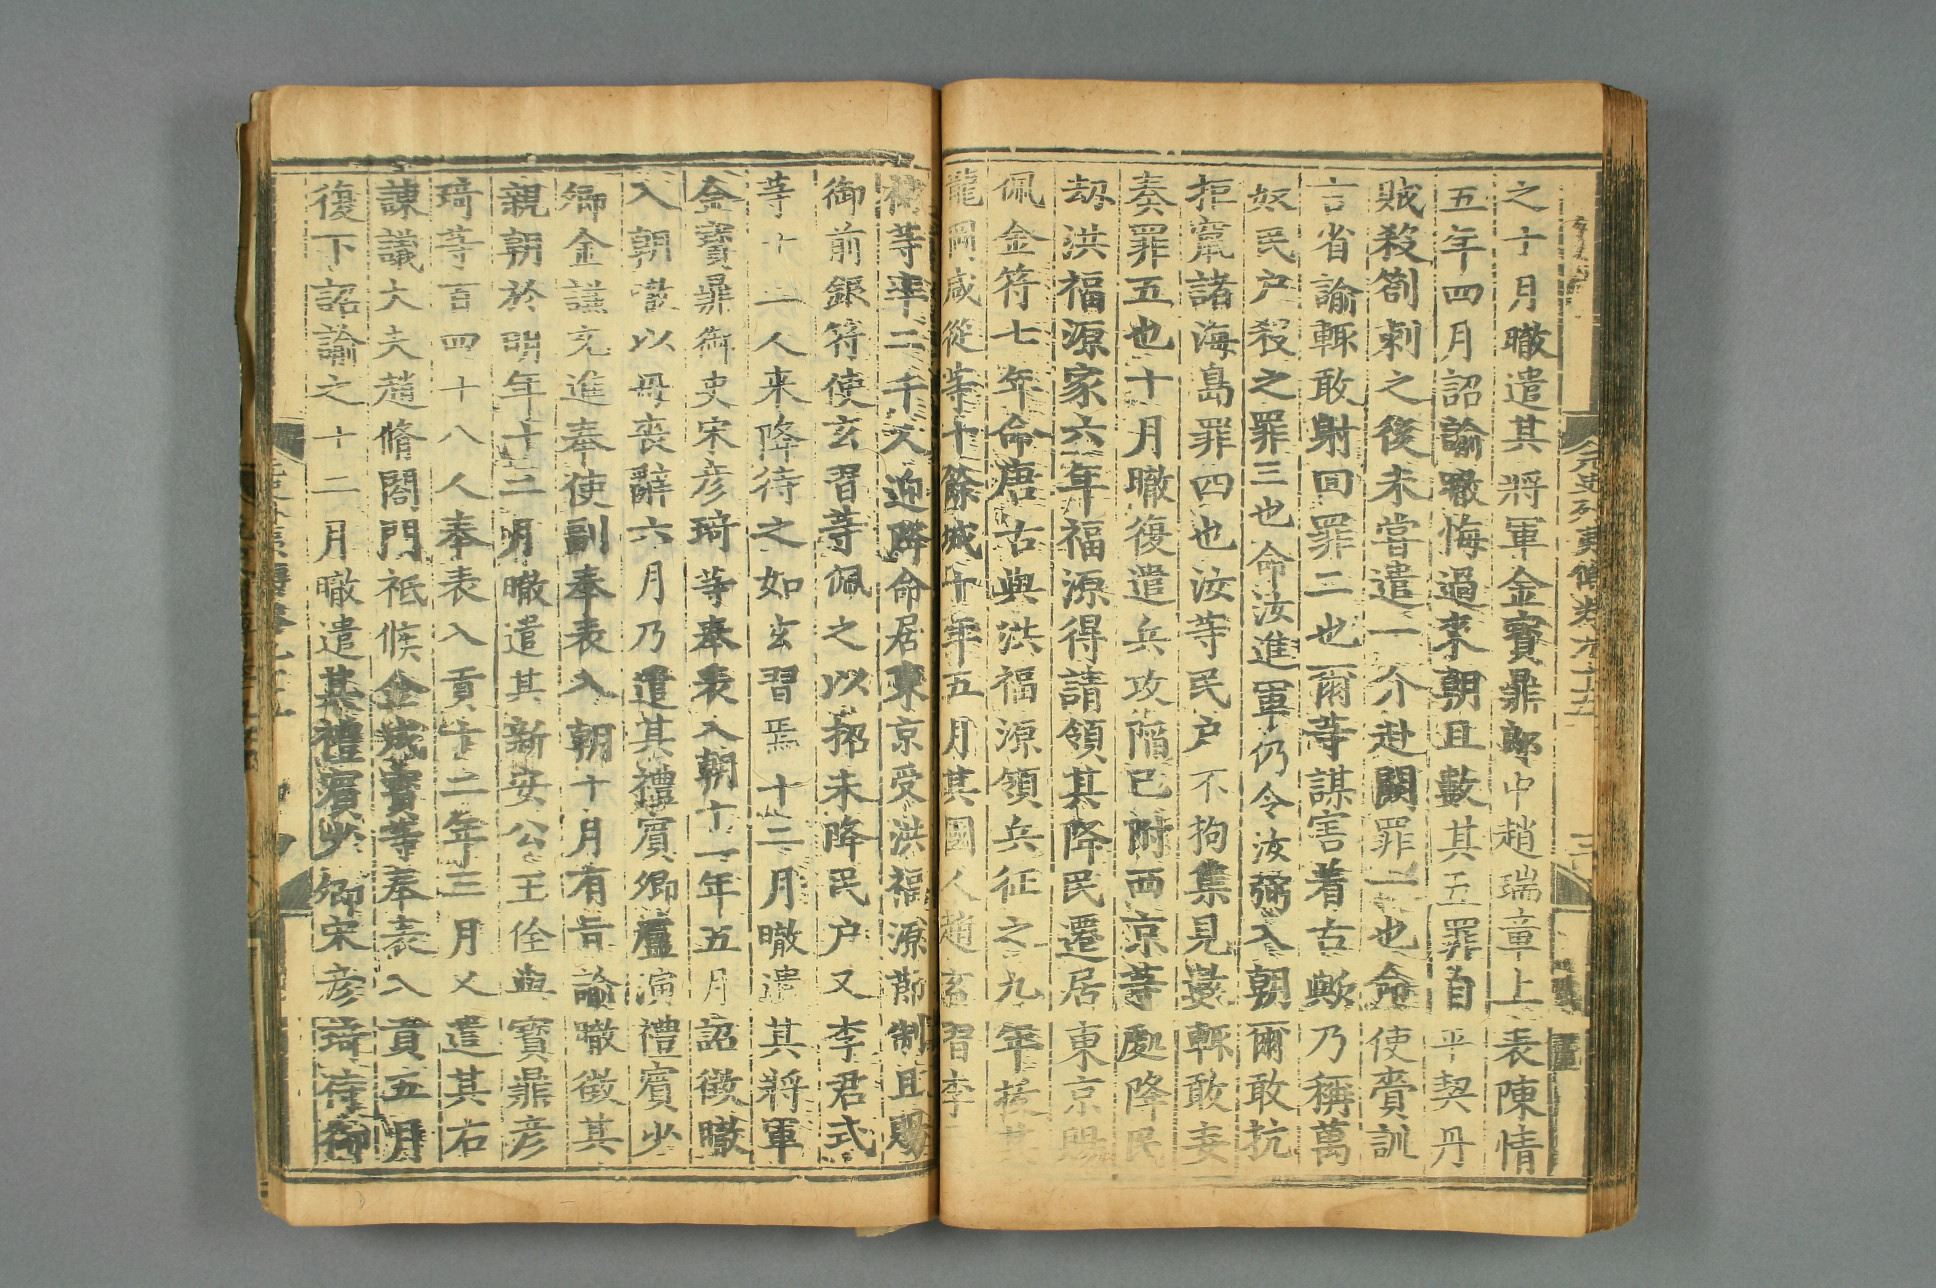 之十月㬚遣其將軍金寶鼎郎中趙瑞章上表陳情
五年四月詔諭㬚悔過來朝且數其五罪自平契丹
賊殺劄剌之後未嘗遣一介赴闕罪一也命使賫訓
言省諭輒敢射回罪二也爾等謀害着古歟乃稱萬
奴民户殺之罪三也命汝進軍仍令汝弼入朝爾敢抗
拒竄諸海島罪四也汝等民户不拘集見輒敢妄
奏罪五也十月㬚復遣兵攻陥已附西京等處降民
刼洪福源家六年福源得請領其降民遷居東京賜
佩金符七年命唐古與洪福源領兵征之九年
龍岡咸從等十餘城十年五月其國人趙玄習李
等率二千人迎降命居東京受洪福源節制且賜
御前銀符使玄習等佩之以招未降民户又李君式
等十二人来降待之如玄習焉十二月㬚遣其將軍
金寶鼎御史宋彦琦等奉表入朝十一年五月詔徴㬚
入朝㬚以母喪辭六月乃遣其禮賓卿盧演禮賓少
卿金謙充進奉使副奉表入朝十月有旨諭㬚徴其
親朝於明年十二明㬚遣其新安公王佺與寶鼎彦
琦等百四十八人奉表入貢十二年三月又遣其右
諫議大夫趙脩閤門祗候金成寶等奉表入貢五月
復下詔諭之十二月㬚遣其禮賓少卿宋彦琦